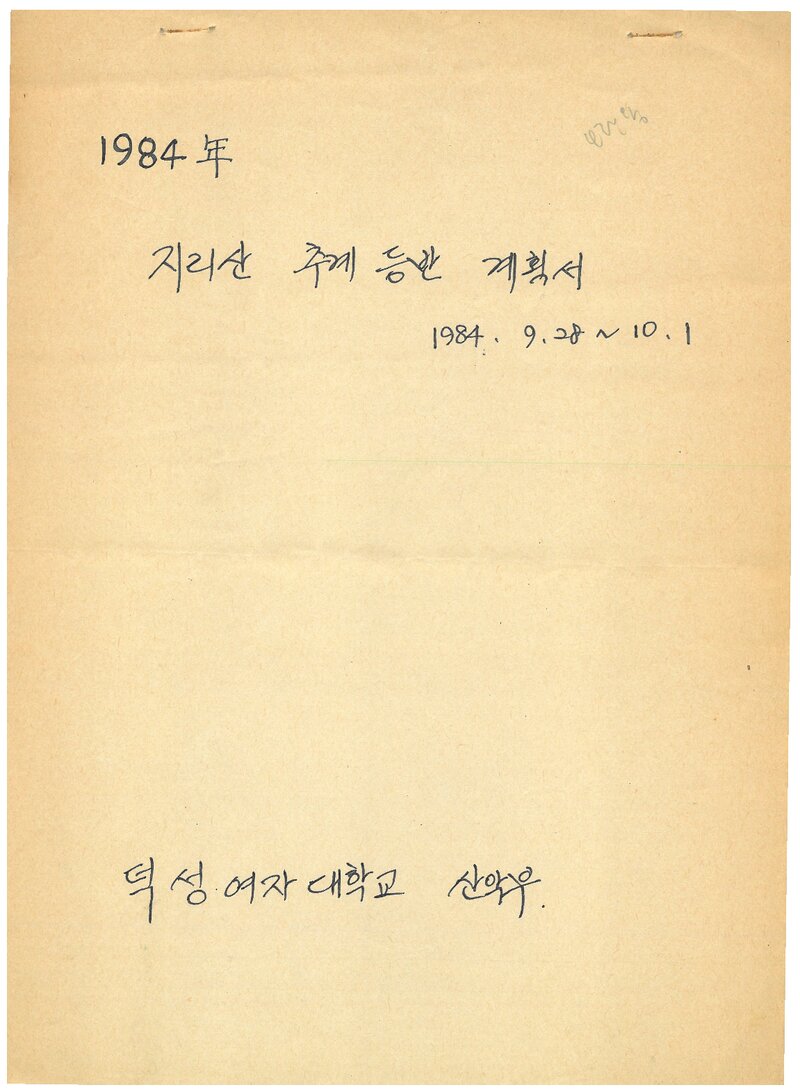 1984 年
지리산 추계 등반 계획서
1984. 9. 28 ~ 10. 1
덕성여자대학교 산악부.